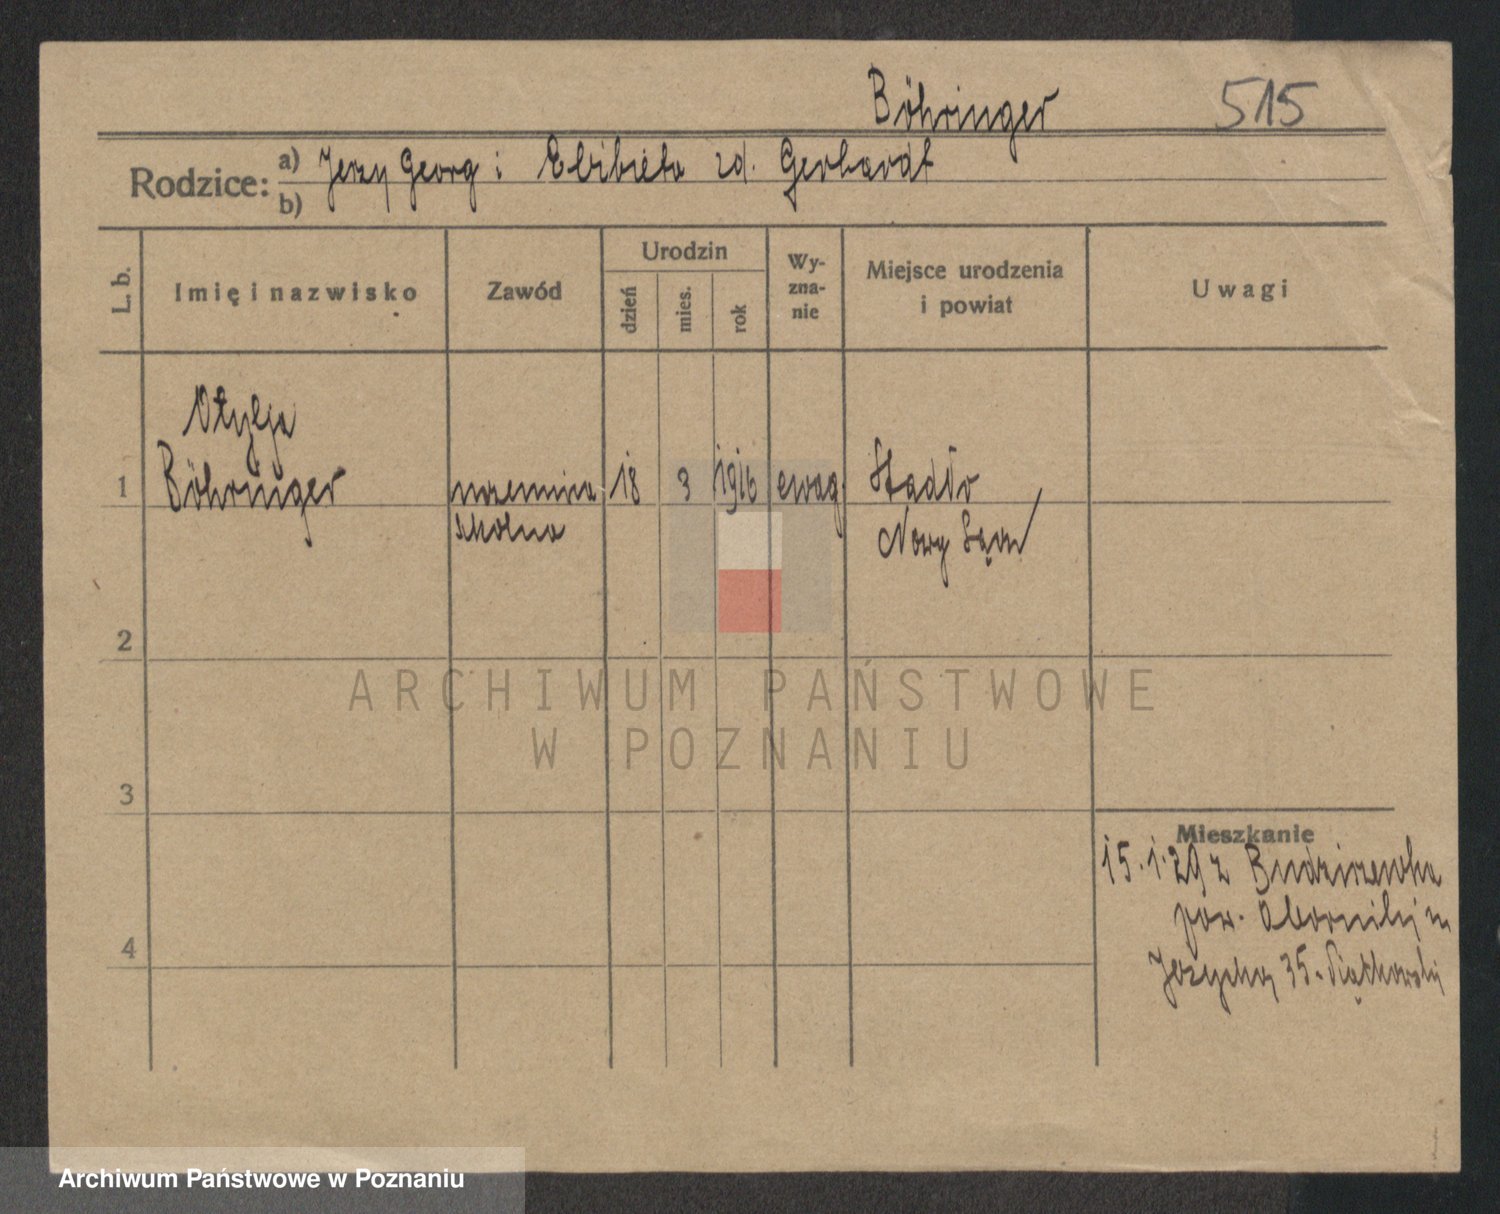 Böhringer 515
Rodzice: a) Jerzy Georg i Elżbieta zd. Gerhardt
b)
L. b.
Imię i nazwisko
Zawód
Urodzin
dzień
mies.
rok
Wy-
zna-
nie
Miejsce urodzenia
i powiat
Uwagi
Otylja
1 Böhringer uczennica 18 3 1916 ewag. Stadło
szkolna Nowy Sącz
2
ARCHIWUM PAŃSTWOWE
W POZNANIU
3
Mieszkanie
15.1.29 z Budziszewka
pow. Oborniki
35.
4
Archiwum Państwowe w Poznaniu